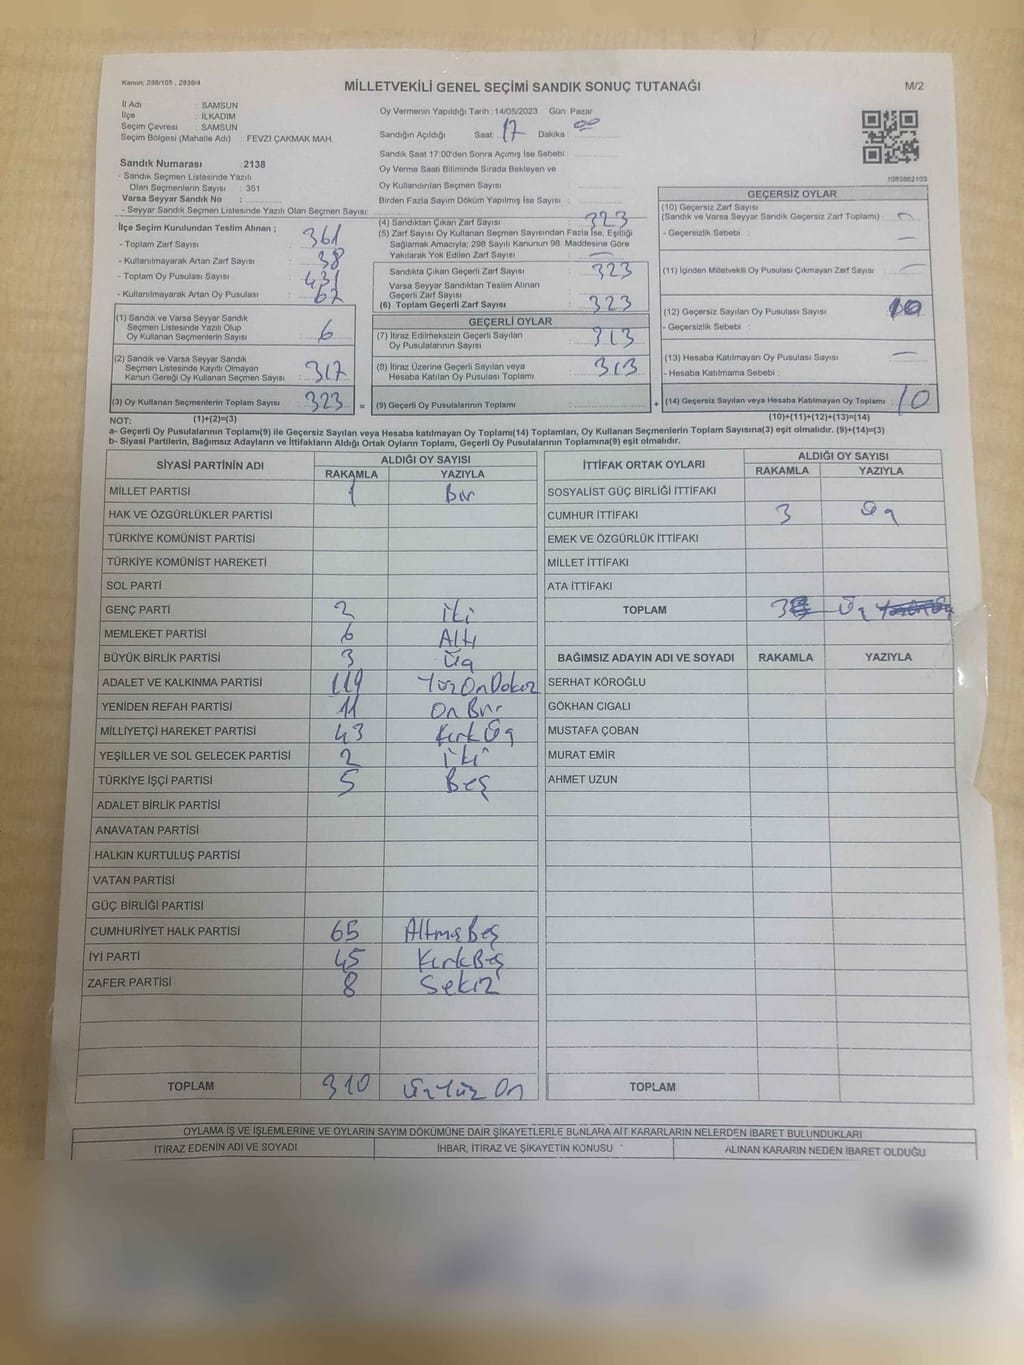 Kanun; 298/105 , 2839/4
MİLLETVEKİLİ GENEL SEÇİMİ SANDIK SONUÇ TUTANAĞI
M/2
İl Adı : SAMSUN
İlçe : İLKADIM
Seçim Çevresi : SAMSUN
Seçim Bölgesi (Mahalle Adı) : FEVZİ ÇAKMAK MAH.
Sandık Numarası : 2138
- Sandık Seçmen Listesinde Yazılı
Olan Seçmenlerin Sayısı : 351
Varsa Seyyar Sandık No :
- Seyyar Sandık Seçmen Listesinde Yazılı Olan Seçmen Sayısı:
Oy Vermenin Yapıldığı Tarih : 14/05/2023 Gün: Pazar
Sandığın Açıldığı Saat: 17 Dakika : 00
Sandık Saat 17:00'den Sonra Açımış İse Sebebi :
Oy Verme Saati Bitiminde Sırada Bekleyen ve
Oy Kullandırılan Seçmen Sayısı :
Birden Fazla Sayım Döküm Yapılmış İse Sayısı :
1085862103
İlçe Seçim Kurulundan Teslim Alınan ;
- Toplam Zarf Sayısı : 361
- Kullanılmayarak Artan Zarf Sayısı : 38
- Toplam Oy Pusulası Sayısı : 431
- Kullanılmayarak Artan Oy Pusulası : 67
(1) Sandık ve Varsa Seyyar Sandık
Seçmen Listesinde Yazılı Olup
Oy Kullanan Seçmenlerin Sayısı : 6
(2) Sandık ve Varsa Seyyar Sandık
Seçmen Listesinde Kayıtlı Olmayan
Kanun Gereği Oy Kullanan Seçmen Sayısı : 317
(3) Oy Kullanan Seçmenlerin Toplam Sayısı : 323 =
(4) Sandıktan Çıkan Zarf Sayısı : 323
(5) Zarf Sayısı Oy Kullanan Seçmen Sayısından Fazla İse, Eşitliği
Sağlamak Amacıyla; 298 Sayılı Kanunun 98. Maddesine Göre
Yakılarak Yok Edilen Zarf Sayısı : —
Sandıkta Çıkan Geçerli Zarf Sayısı : 323
Varsa Seyyar Sandıktan Teslim Alınan
Geçerli Zarf Sayısı :
(6) Toplam Geçerli Zarf Sayısı : 323
GEÇERLİ OYLAR
(7) İtiraz Edilmeksizin Geçerli Sayılan
Oy Pusulalarının Sayısı : 313
(8) İtiraz Üzerine Geçerli Sayılan veya
Hesaba Katılan Oy Pusulası Toplamı : 313
(9) Geçerli Oy Pusulalarının Toplamı : +
GEÇERSİZ OYLAR
(10) Geçersiz Zarf Sayısı
(Sandık ve Varsa Seyyar Sandık Geçersiz Zarf Toplamı) : —
- Geçersizlik Sebebi : —
(11) İçinden Milletvekili Oy Pusulası Çıkmayan Zarf Sayısı : —
(12) Geçersiz Sayılan Oy Pusulası Sayısı : 10
- Geçersizlik Sebebi :
(13) Hesaba Katılmayan Oy Pusulası Sayısı : —
- Hesaba Katılmama Sebebi :
(14) Geçersiz Sayılan veya Hesaba Katılmayan Oy Toplamı : 10
NOT: (1)+(2)=(3) (10)+(11)+(12)+(13)=(14)
a- Geçerli Oy Pusulalarının Toplamı(9) ile Geçersiz Sayılan veya Hesaba katılmayan Oy Toplamı(14) Toplamları, Oy Kullanan Seçmenlerin Toplam Sayısına(3) eşit olmalıdır. (9)+(14)=(3)
b- Siyasi Partilerin, Bağımsız Adayların ve İttifakların Aldığı Ortak Oyların Toplamı, Geçerli Oy Pusulalarının Toplamına(9) eşit olmalıdır.
SİYASİ PARTİNİN ADI ALDIĞI OY SAYISI
RAKAMLA YAZIYLA
MİLLET PARTİSİ 1 Bir
HAK VE ÖZGÜRLÜKLER PARTİSİ
TÜRKİYE KOMÜNİST PARTİSİ
TÜRKİYE KOMÜNİST HAREKETİ
SOL PARTİ
GENÇ PARTİ 2 İki
MEMLEKET PARTİSİ 6 Altı
BÜYÜK BİRLİK PARTİSİ 3 Üç
ADALET VE KALKINMA PARTİSİ 119 YüzOnDokuz
YENİDEN REFAH PARTİSİ 11 OnBir
MİLLİYETÇİ HAREKET PARTİSİ 43 KırkÜç
YEŞİLLER VE SOL GELECEK PARTİSİ 2 İki
TÜRKİYE İŞÇİ PARTİSİ 5 Beş
ADALET BİRLİK PARTİSİ
ANAVATAN PARTİSİ
HALKIN KURTULUŞ PARTİSİ
VATAN PARTİSİ
GÜÇ BİRLİĞİ PARTİSİ
CUMHURİYET HALK PARTİSİ 65 AltmışBeş
İYİ PARTİ 45 KırkBeş
ZAFER PARTİSİ 8 Sekiz
TOPLAM 310 ÜçYüz On
İTTİFAK ORTAK OYLARI ALDIĞI OY SAYISI
RAKAMLA YAZIYLA
SOSYALİST GÜÇ BİRLİĞİ İTTİFAKI
CUMHUR İTTİFAKI 3 Üç
EMEK VE ÖZGÜRLÜK İTTİFAKI
MİLLET İTTİFAKI
ATA İTTİFAKI
TOPLAM 3 Üç
BAĞIMSIZ ADAYIN ADI VE SOYADI RAKAMLA YAZIYLA
SERHAT KÖROĞLU
GÖKHAN CIGALI
MUSTAFA ÇOBAN
MURAT EMİR
AHMET UZUN
TOPLAM
OYLAMA İŞ VE İŞLEMLERİNE VE OYLARIN SAYIM DÖKÜMÜNE DAİR ŞİKAYETLERLE BUNLARA AİT KARARLARIN NELERDEN İBARET BULUNDUKLARI
İTİRAZ EDENİN ADI VE SOYADI İHBAR, İTİRAZ VE ŞİKAYETİN KONUSU ALINAN KARARIN NEDEN İBARET OLDUĞU